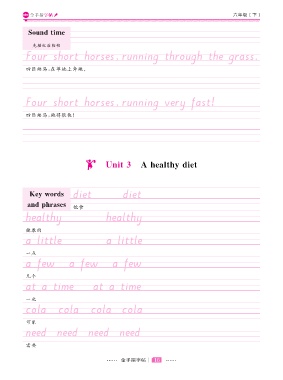 六年级（下）
Sound time
先描红后仿写
Four short horses, running through the grass.
四匹矮马，在草地上奔跑。
Four short horses, running very fast!
四匹矮马，跑得很快！
Unit 3 A healthy diet
Key words and phrases
diet diet
饮食
healthy healthy
健康的
a little a little
一点
a few a few a few
几个
at a time at a time
一次
cola cola cola cola
可乐
need need need need
需要